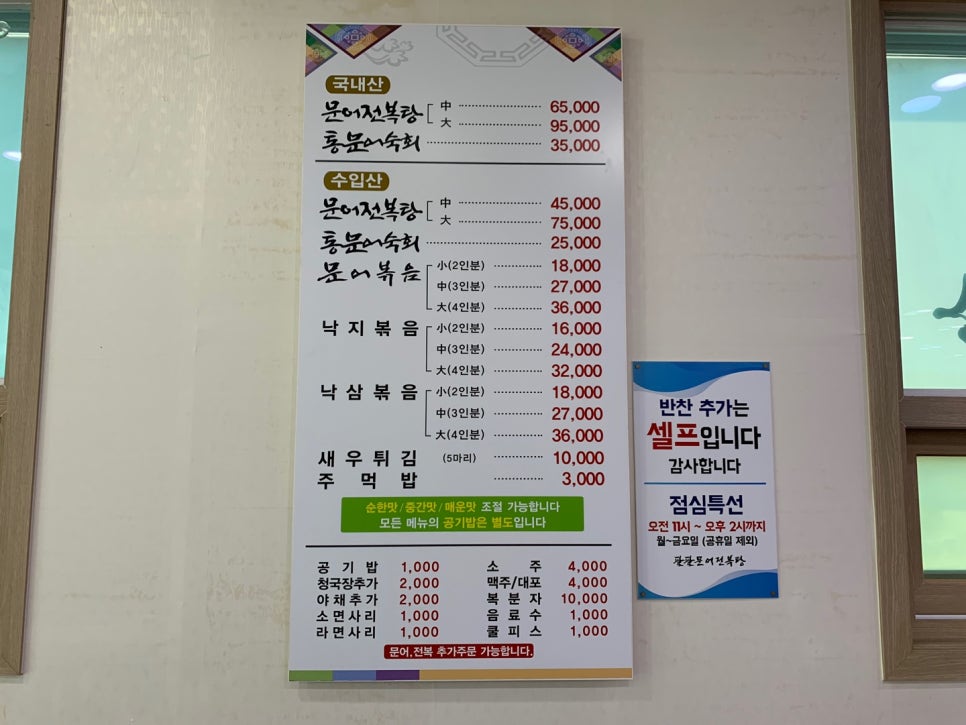 국내산
문어전복탕 中 65,000
大 95,000
통문어숙회 35,000
수입산
문어전복탕 中 45,000
大 75,000
통문어숙회 25,000
문어볶음 小(2인분) 18,000
中(3인분) 27,000
大(4인분) 36,000
낙지볶음 小(2인분) 16,000
中(3인분) 24,000
大(4인분) 32,000
낙삼볶음 小(2인분) 18,000
中(3인분) 27,000
大(4인분) 36,000
새우튀김 (5마리) 10,000
주먹밥 3,000
순한맛/중간맛/매운맛 조절 가능합니다
모든 메뉴의 공기밥은 별도입니다
공기밥 1,000
청국장추가 2,000
야채추가 2,000
소면사리 1,000
라면사리 1,000
소주 4,000
맥주/대포 4,000
복분자 10,000
음료수 1,000
쿨피스 1,000
문어,전복 추가주문 가능합니다.
반찬 추가는
셀프입니다
감사합니다
점심특선
오전 11시 ~ 오후 2시까지
월~금요일 (공휴일 제외)
팔팔문어전복탕